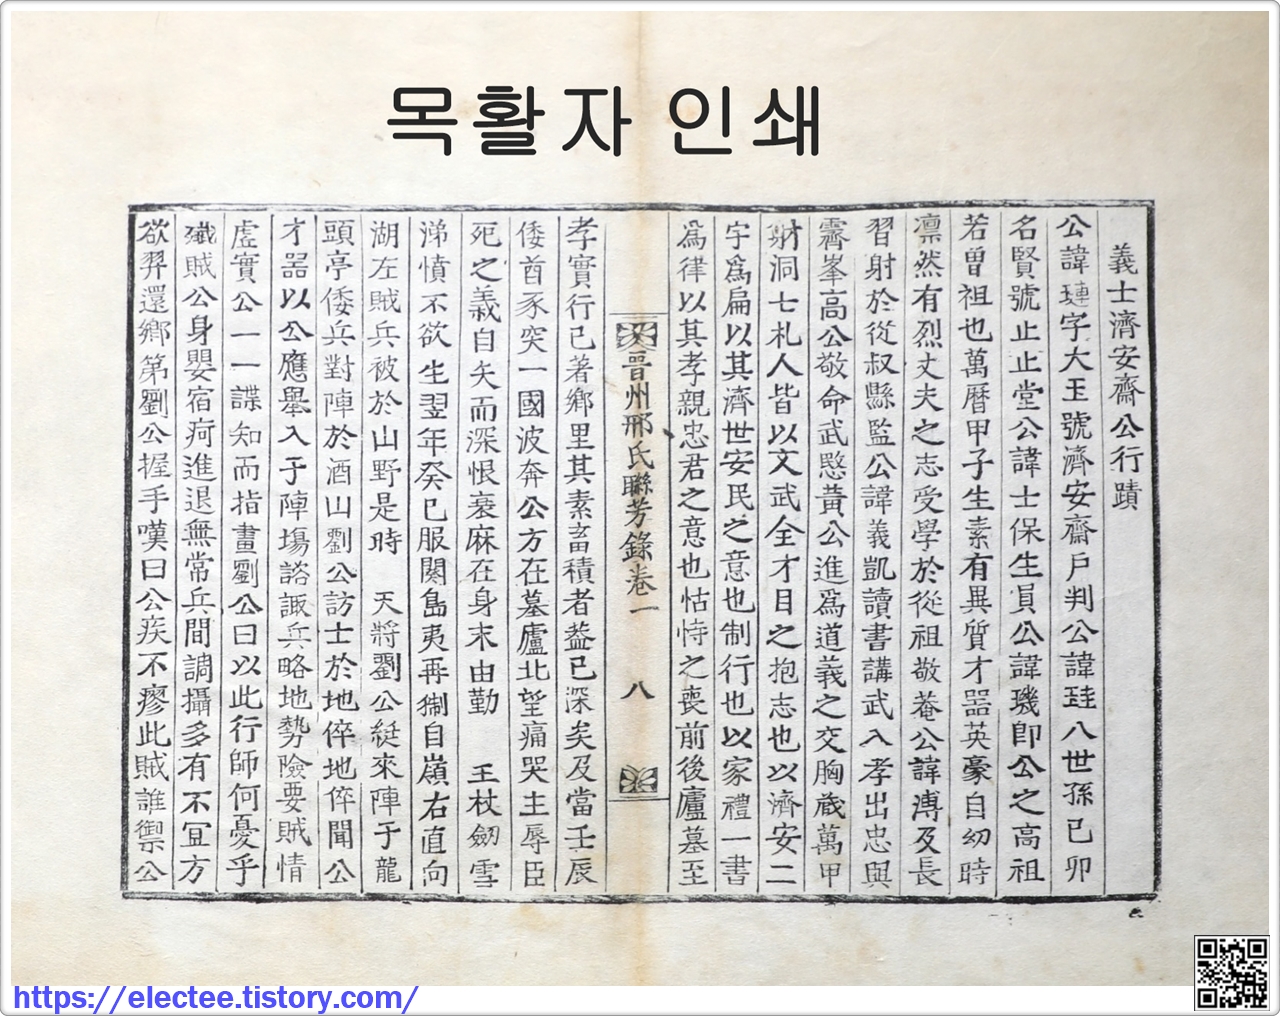 목활자 인쇄
義士濟安齋公行蹟
公諱璉字大玉號濟安齋戶判公諱珪八世孫己卯
名賢號止止堂公諱士保生員公諱璣卽公之高祖
若曾祖也萬曆甲子生素有異質才器英豪自幼時
凛然有烈丈夫之志受學於從祖敬菴公諱溥及長
習射於從叔縣監公諱義凱讀書講武入孝出忠與
霽峯高公敬命武愍黃公進爲道義之交胸藏萬甲
射洞七札人皆以文武全才目之抱志也以濟安二
字爲扁以其濟世安民之意也制行也以家禮一書
爲律以其孝親忠君之意也怙恃之喪前後廬墓至
晉州邢氏聯芳錄卷一 八
孝實行已著鄕里其素畜積者盖已深矣及當壬辰
倭酋豕突一國波奔公方在墓廬北望痛哭主辱臣
死之義自矢而深恨衰麻在身末由勤 王杖劒雪
涕憤不欲生翌年癸巳服闋島夷再猘自嶺右直向
湖左賊兵被於山野是時 天將劉公綎來陣于龍
頭亭倭兵對陣於酒山劉公訪士於地倅地倅聞公
才器以公應擧入于陣塲諮諏兵略地勢險要賊情
虛實公一一諜知而指畫劉公曰以此行師何憂乎
殲賊公身嬰宿疴進退無常兵間調攝多有不宜方
欲舁還鄕第劉公握手嘆曰公疾不瘳此賊誰禦公
https://electee.tistory.com/